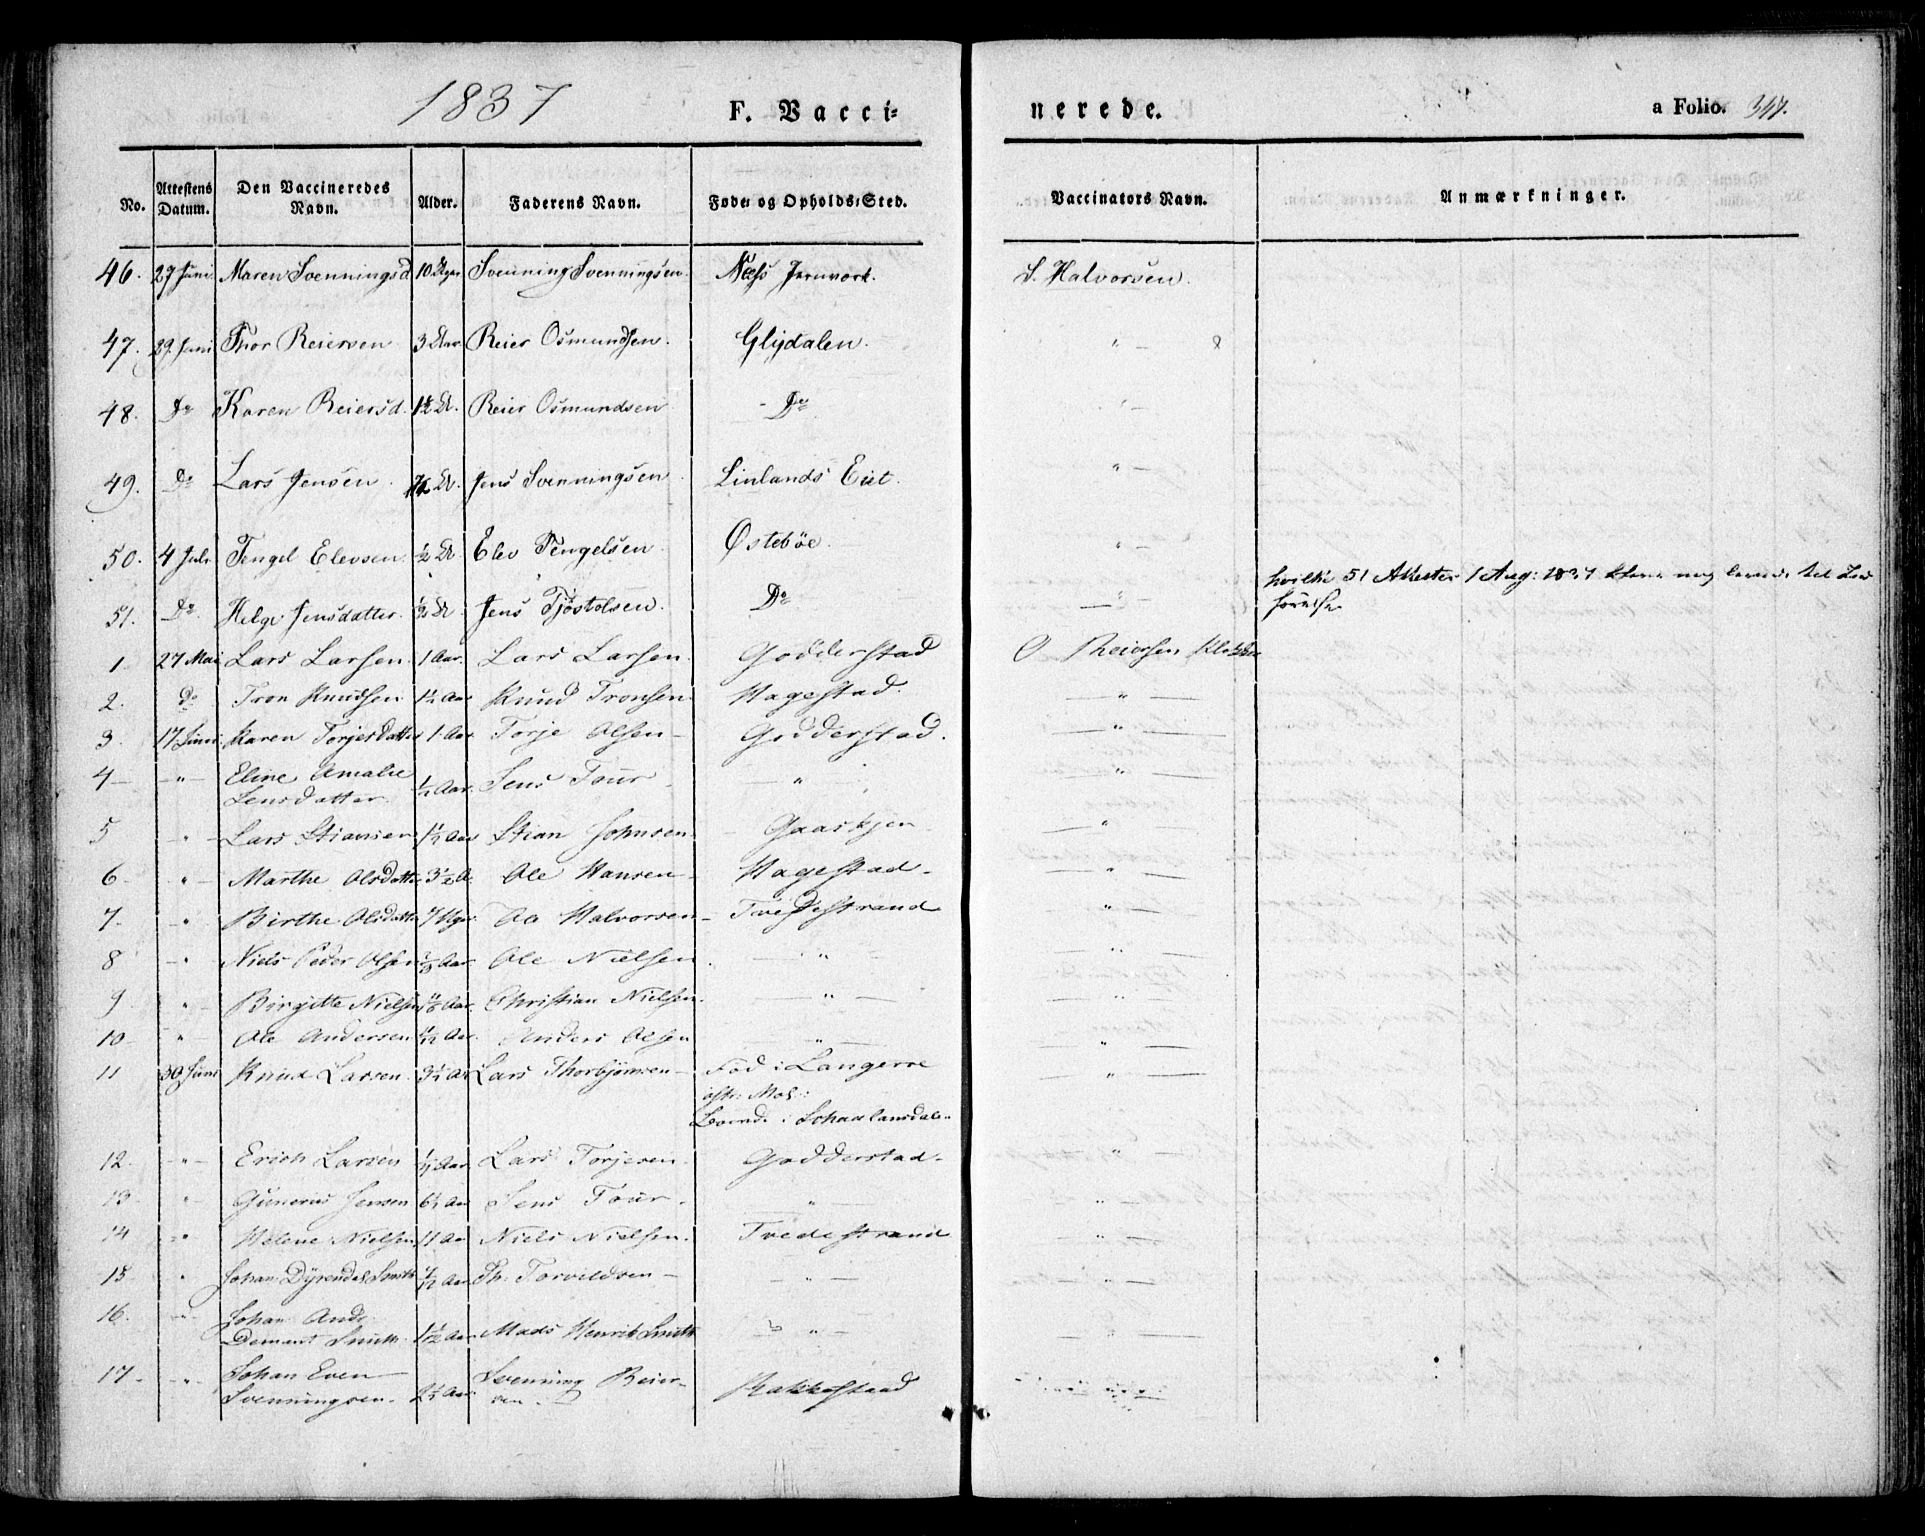 1837 F. Vacci- nerede. a Folio. 347.
No. Attestens Datum. Den Vaccineredes Navn. Alder. Faderens Navn. Føde- og Opholds-Sted. Vaccinators Navn. Anmærkninger.
46. 29 Juni Maren Svenningsd 10 Svenning Svenningsen. Næss Jernværk. S. Halvorsen.
47. 29 Juni Thor Reiersen 3 Aar. Reier Osmundsen. Glydalen. " —
48. Do Karen Reiersd. 1½ A. Reier Osmundsen Do " —
49. Do Lars Jensen A. Jens Svenningsen Linlands Eiet. " —
50. 4 Juli Tengel Elevsen ½ A. Elev Tengelsen Østebøe. " —
hvilke 51 Attester 1 Aug: 1837 til Ind-
førelse
51. Do Helge Jensdatter. ½ A. Jens Tjöstolsen. Do — " —
1 27 Mai Lars Larsen 1 Aar. Lars Larsen. Godderstad O Reiersen
2. do Tron Knudsen 1½ Aar Knud Tronsen Hagestad. — " —
3. 17 Juni Karen Torjesdatter 1 Aar Torje Olsen — Godderstad. — " —
4 — — " — Eline Amalie
Jensdatter ½ Aar. Jens Tour — " — — " —
5 " — Lars Stiansen 1½ Aar Stian Johnsen Gaaskjen — " —
6 " — Marthe Olsdatter 3½ A. Ole Hansen — Hagestad — — " —
7. — " Birthe Olsdatter 7 Ole Halvorsen — Tvedestrand — " —
8 — " Niels Peder Olsen Aar. Ole Nielsen — " — — " —
9 " — Birgitte Nielsen Aar. Christian Nielsen. " — — " —
10 — " Ole Andersen Aar. Anders Olsen — " — — " —
11 30 Juni Knud Larsen. Lars Thorbjörnsen — Fød i Langerre
östr: Mol:
i Schaalansdalen — " —
12. — " — Erich Larsen Aar Lars Torjesen. Godderstad — — " —
13 — " Gunerus Jensen Aar Jens Tour. " — " —
14 — " Helene Nielsen 11 Aar Niels Nielsen. Tvedestrand — " —
15 " Johan Dyrendal Smith Aar Th: Torvildsen — — " — — " —
16. — " — Johan Andr
Demant Smith Aar Mads Henrik Smith " — — " —
17 — — " — Johan Even
Svenningsen. 2½ Aar Svenning Reier-
sen. Rakkestad